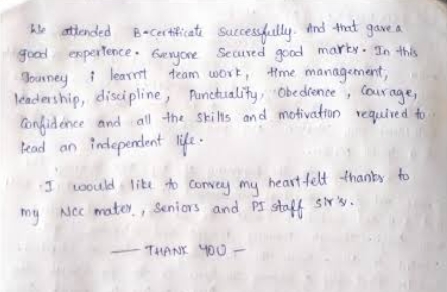 We attended B-Certificate Successfully. And that gave a
good experience. Everyone Secured good marks. In this
Journey i learnt team work, time management,
leadership, discipline, Punctuality, Obedience, Courage,
Confidence and all the skills and motivation required to
lead an independent life.
I would like to convey my heartfelt thanks to
my NCC mates, seniors and PI staff sir's.
— THANK YOU —